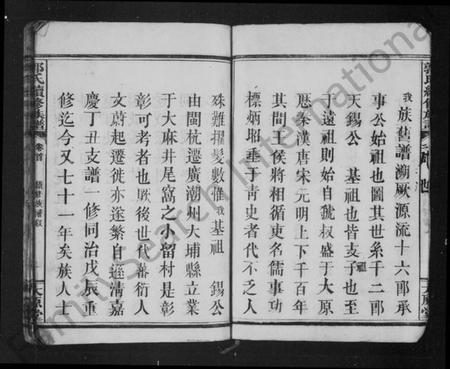 我族舊譜溯厥源流十六郎承
事公始祖也圖其世系千二郎
天錫公 基祖也皆支子也至
于遠祖則始自虢叔盛于大原
歷秦漢唐宋元明上下千百年
其間王侯將相循吏名儒事功
標炳昭垂于青史者代不乏人
殊難擢髮數惟我基祖 錫公
由閩杭遷廣潮州大埔縣立業
于大麻井尾窩之小留村是彰
彰可考者也厥後世代蕃衍人
文蔚起遷徙亦遂繁自遜清嘉
慶丁丑支譜一修同治戊辰重
修迄今又七十一年矣族人士
郭氏續修族譜 卷首
太原堂
FamilySearch International